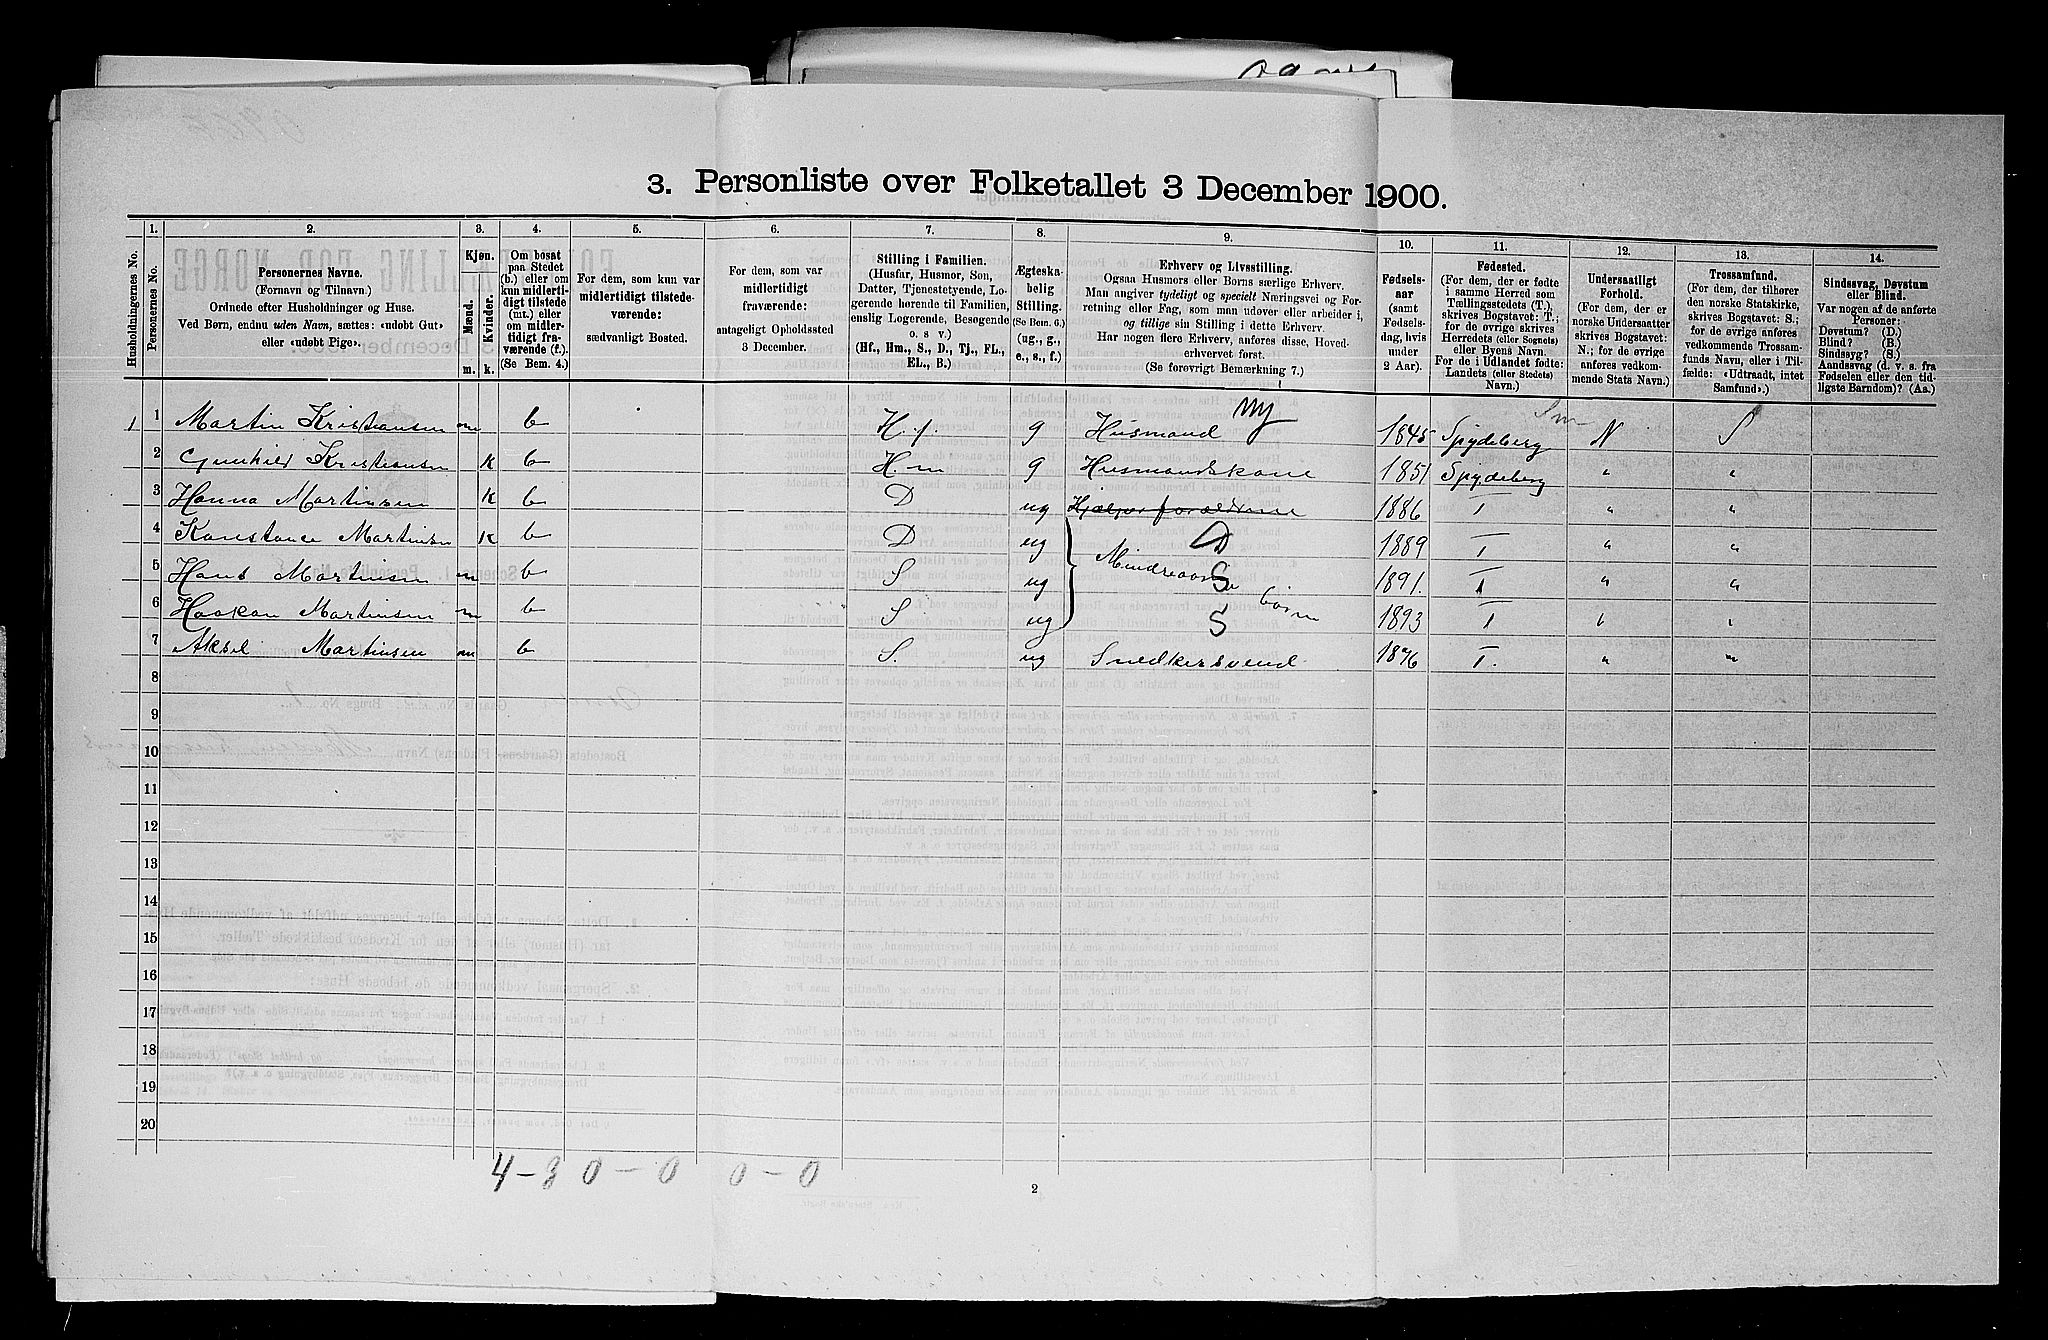 3. Personliste over Folketallet 3 December 1900.
Husholdningernes No.
1. Personernes No.
2. Personernes Navne.
(Fornavn og Tilnavn.)
Ordnede efter Husholdninger og Huse.
Ved Børn, endnu uden Navn, sættes: «udøbt Gut»
eller «udøbt Pige».
3. Kjøn.
Mænd. Kvinder.
m. k.
4. Om bosat
paa Stedet
(b.) eller om
kun midlerti-
digt tilstede
(mt.) eller
om midler-
tidigt fra-
værende (f.).
(Se Bem. 4.)
5. For dem, som kun var
midlertidigt tilstede-
værende:
sædvanligt Bosted.
6. For dem, som var
midlertidigt
fraværende:
antageligt Opholdssted
3 December.
7. Stilling i Familien.
(Husfar, Husmor, Søn,
Datter, Tjenestetyende, Lo-
gerende hørende til Familien,
enslig Logerende, Besøgende
o. s. v.)
(Hf., Hm., S., D., Tj., FL.,
EL., B.)
8. Ægteska-
belig
Stilling.
(Se Bem. 6.)
(ug., g.,
e., s., f.)
9. Erhverv og Livsstilling.
Ogsaa Husmors eller Børns særlige Erhverv.
Man angiver tydeligt og specielt Næringsvei og For-
retning eller Fag, som man udøver eller arbeider i,
og tillige sin Stilling i dette Erhverv.
Har nogen flere Erhverv, anføres disse, Hoved-
erhvervet først.
(Se forøvrigt Bemærkning 7.)
10. Fødsels-
aar
(samt
Fødsels-
dag, hvis
under
2 Aar).
11. Fødested.
(For dem, der er fødte
i samme Herred som
Tællingsstedets (T.),
skrives Bogstavet: T.;
for de øvrige skrives
Herredets (eller Sognets)
eller Byens Navn.
For de i Udlandet fødte:
Landets (eller Stedets)
Navn.)
12. Undersaatligt
Forhold.
(For dem, der er
norske Undersaatter
skrives Bogstavet:
N.; for de øvrige
anføres vedkom-
mende Stats Navn.)
13. Trossamfund.
(For dem, der tilhører
den norske Statskirke,
skrives Bogstavet: S.;
for de øvrige anføres
vedkommende Trossam-
funds Navn, eller i Til-
fælde: «Udtraadt, intet
Samfund».)
14. Sindssvag, Døvstum
eller Blind.
Var nogen af de anførte
Personer:
Døvstum? (D.)
Blind? (B.)
Sindssyg? (S.)
Aandssvag (d. v. s. fra
Fødselen eller den tid-
ligste Barndom)? (Aa.)
1 1 Martin Kristiansen m b H.f g Husmand my 1845 Spydeberg Sm N S
2 Gunhild Kristiansen K b H.m g Husmandskone 1851 Spydeberg " "
3 Hanna Martinsen K b D ug Hjælper forældrene 1886 T " "
4 Konstance Martinsen K b D ug D 1889 T " "
5 Hans Martinsen m b S ug Mindreaarige S 1891. T " "
6 Haakon Martinsen m b S ug S børn 1893 T " "
7 Aksel Martinsen m b S. ug Snedkersvend 1876 T. " "
8
9
10
11
12
13
14
15
16
17
18
19
20
4-3 0-0 0-0
2